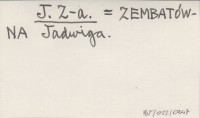 J. Z-a. = ZEMBATÓW-
NA Jadwiga.